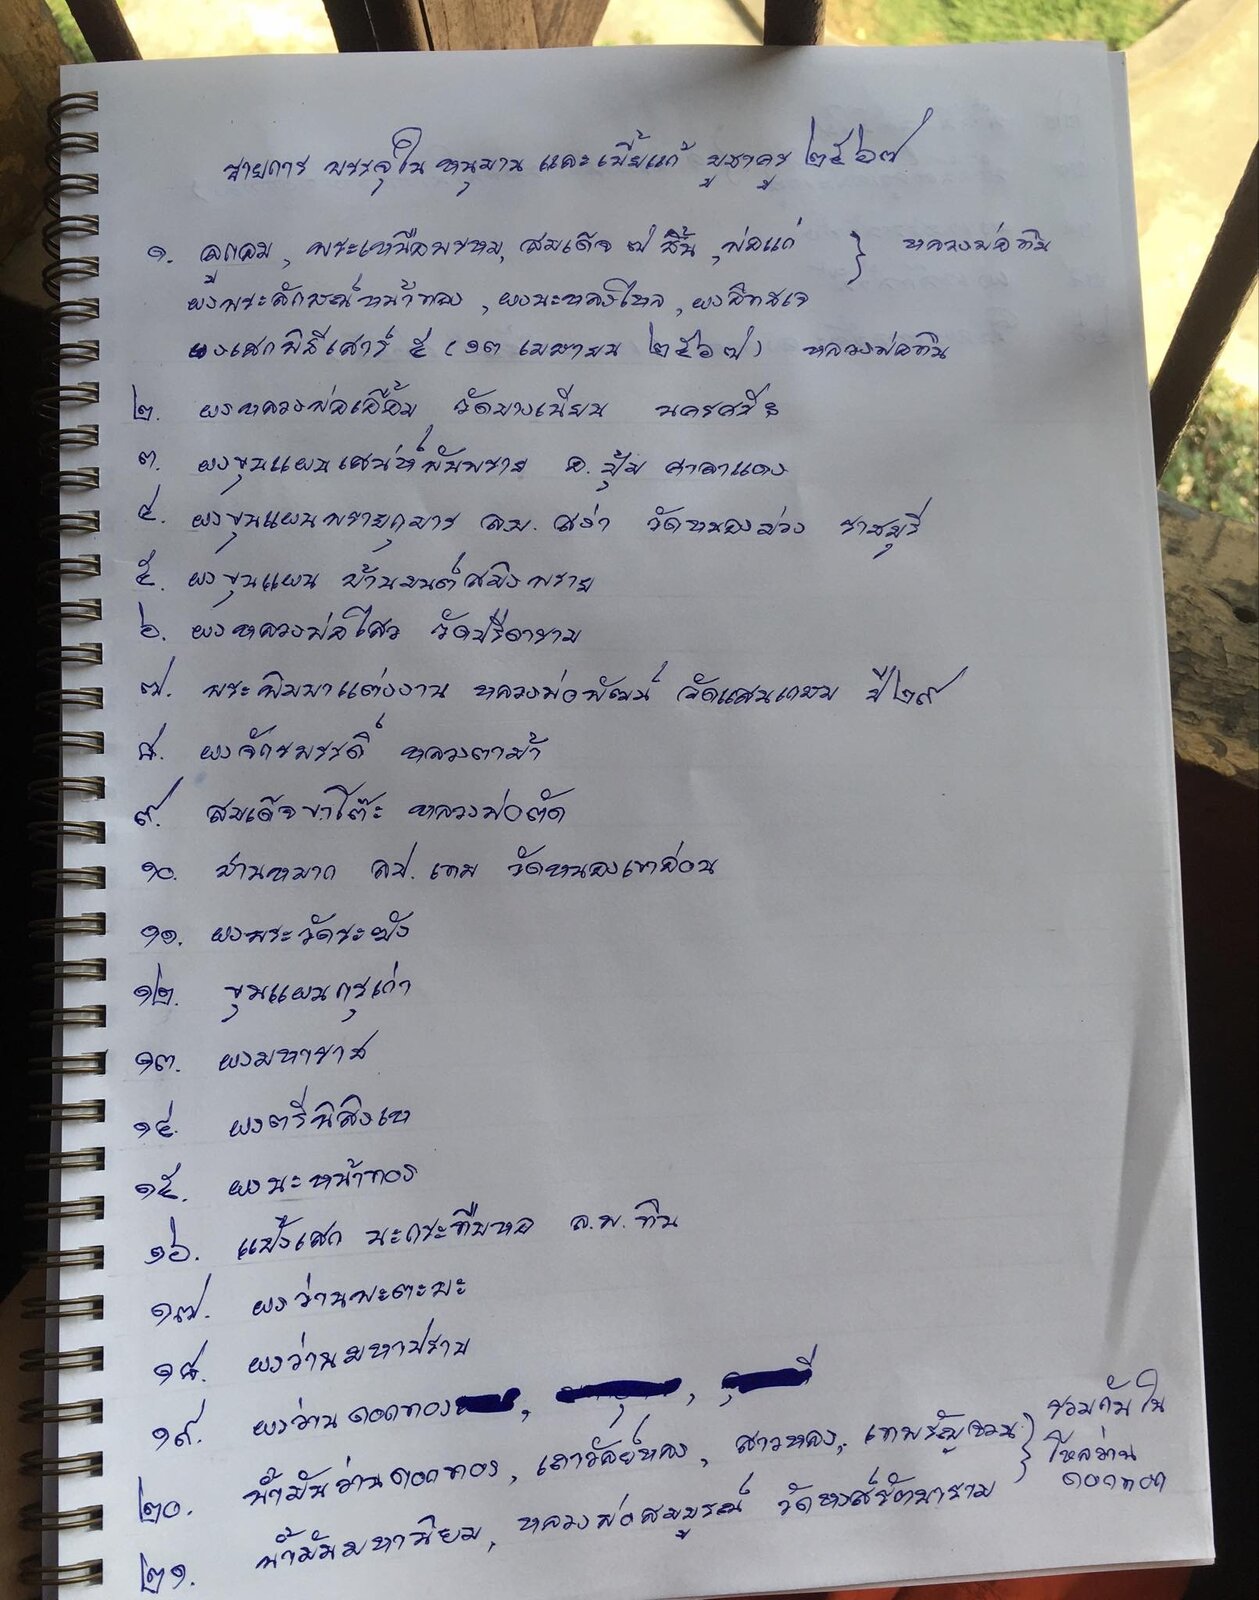 รายการ บรรจุใน หนุมาน และเบี้ยแก้ บูชาครู ๒๕๖๗
๑. ลูกอม, พระเหนือพรหม, สมเด็จ ๗ ชั้น, พ่อแก่ } หลวงพ่อทิม
ผงพระลักษณ์หน้าทอง, ผงนะหลงใหล,
ผงเสกพิธีเสาร์ ๕ (๑๓ เมษายน ๒๕๖๗) หลวงพ่อทิม
๒. ผงหลวงพ่อเอื้อม วัดบางเนียน นครศรีฯ
๓. ผงขุนแผนเสน่ห์พันพราย อ. ปุ้ม ศาลาแดง
๔. ผงขุนแผนพรายกุมาร ลพ. สง่า วัดหนองม่วง ราชบุรี
๕. ผงขุนแผน บ้านมนต์สมิงพราย
๖. ผงหลวงพ่อไสว วัดปรีดาราม
๗. พระพิมพาแต่งงาน หลวงพ่อพัฒน์ วัดแสนเกษม ปี๒๙
๘. ผงจักรพรรดิ์ หลวงตาม้า
๙. สมเด็จขาโต๊ะ หลวงพ่อตัด
๑๐. ชานหมาก ลป. วัดหนองเขาอ่อน
๑๑. ผงพระวัดระฆัง
๑๒. ขุนแผนกรุเก่า
๑๓. ผงมหาราช
๑๔. ผงตรีนิสิงเห
๑๕. ผงนะหน้าทอง
๑๖. แป้งเสก นะกระทืบหอ ล.พ.ทิม
๑๗. ผงว่านพะตะบะ
๑๘. ผงว่านมหาปราบ
๑๙. ผงว่านดอกทอง
๒๐. น้ำมันว่านดอกทอง, เถาวัลย์หลง, สาวหลง, เทพรัญจวน } รวมกันใน
โหลว่าน
ดอกทอง
๒๑. น้ำมันมหานิยม, หลวงพ่อสมบูรณ์ วัดหงส์รัตนาราม